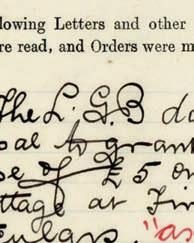 lowing Letters and other
re read, and Orders were m
The L. G. B do
oal to grant
se of £5 on
ttage at Fir
"as